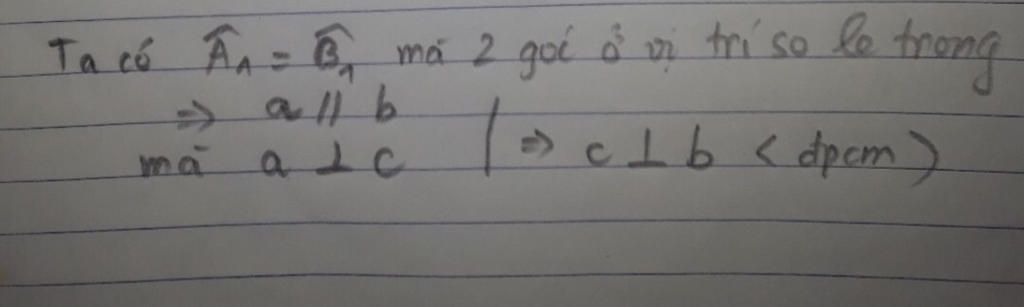 Ta có Â₁ = B̂₁ mà 2 goí ở vị trí so le trong
=> a // b
mà a ⊥ c | => c ⊥ b < đpcm )